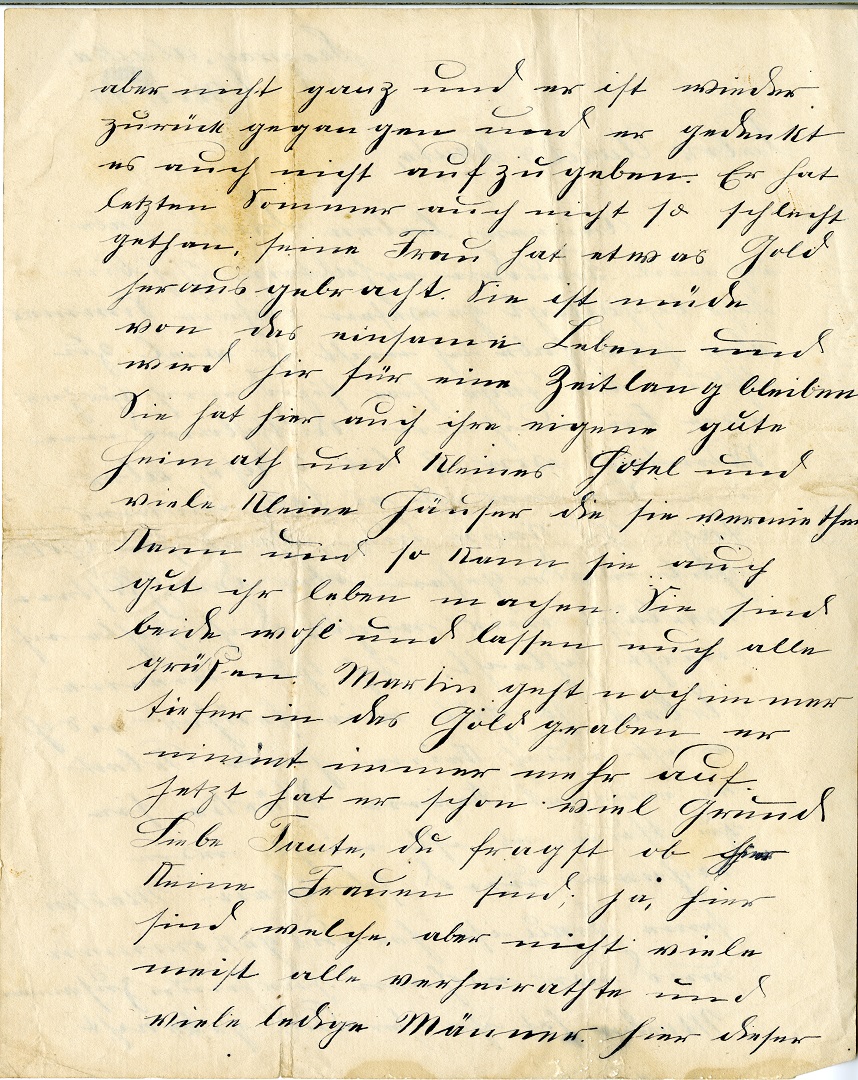 aber nicht ganz und er ist wieder
zurück gegangen und er gedenkt
es auch nicht aufzugeben. Er hat
letzten Sommer auch nicht so schlecht
gethan, seine Frau hat etwas Gold
heraus gebracht. Sie ist müde
von das einsame Leben und
wird hir für eine Zeitlang bleiben
Sie hat hier auch ihre eigene gute
Heimath und kleines Hotel und
viele kleine Häuser die sie vermiethen
kann und so kann sie auch
gut ihr leben machen. Sie sind
beide wohl und lassen euch alle
grüßen. Martin geht noch immer
tiefer in das Gold graben er
nimmt immer mehr auf.
Jetzt hat er schon viel Grund
Liebe Tante, du fragst ob hier
keine Frauen sind; ja, hier
sind welche, aber nicht viele
meist alle verheirathte und
viele ledige Männer. Hier dieser